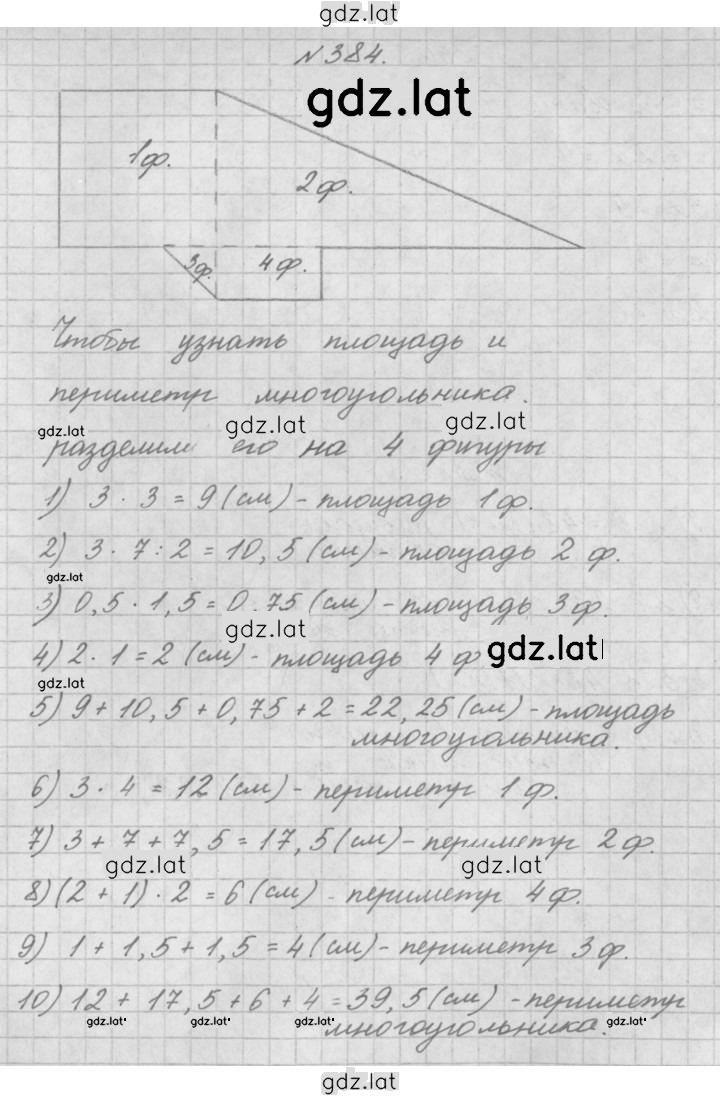 gdz.lat
№384.
gdz.lat
1ф.
2ф.
3ф.
4ф.
Чтобы узнать площадь и
периметр многоугольника.
gdz.lat gdz.lat gdz.lat
разделим его на 4 фигуры
1) 3 · 3 = 9 (см) - площадь 1 ф.
2) 3 · 7 : 2 = 10,5 (см) - площадь 2 ф.
gdz.lat
3) 0,5 · 1,5 = 0.75 (см) - площадь 3 ф.
gdz.lat
4) 2 · 1 = 2 (см) - площадь 4 ф gdz.lat
gdz.lat
5) 9 + 10,5 + 0,75 + 2 = 22,25 (см) - площадь
многоугольника.
6) 3 · 4 = 12 (см) - периметр 1 ф.
7) 3 + 7 + 7,5 = 17,5 (см) - периметр 2 ф.
gdz.lat gdz.lat
8) (2 + 1) · 2 = 6 (см) - периметр 4 ф.
9) 1 + 1,5 + 1,5 = 4 (см) - периметр 3 ф.
10) 12 + 17,5 + 6 + 4 = 39,5 (см) - периметр
gdz.lat gdz.lat gdz.lat многоугольника. gdz.lat
gdz.lat